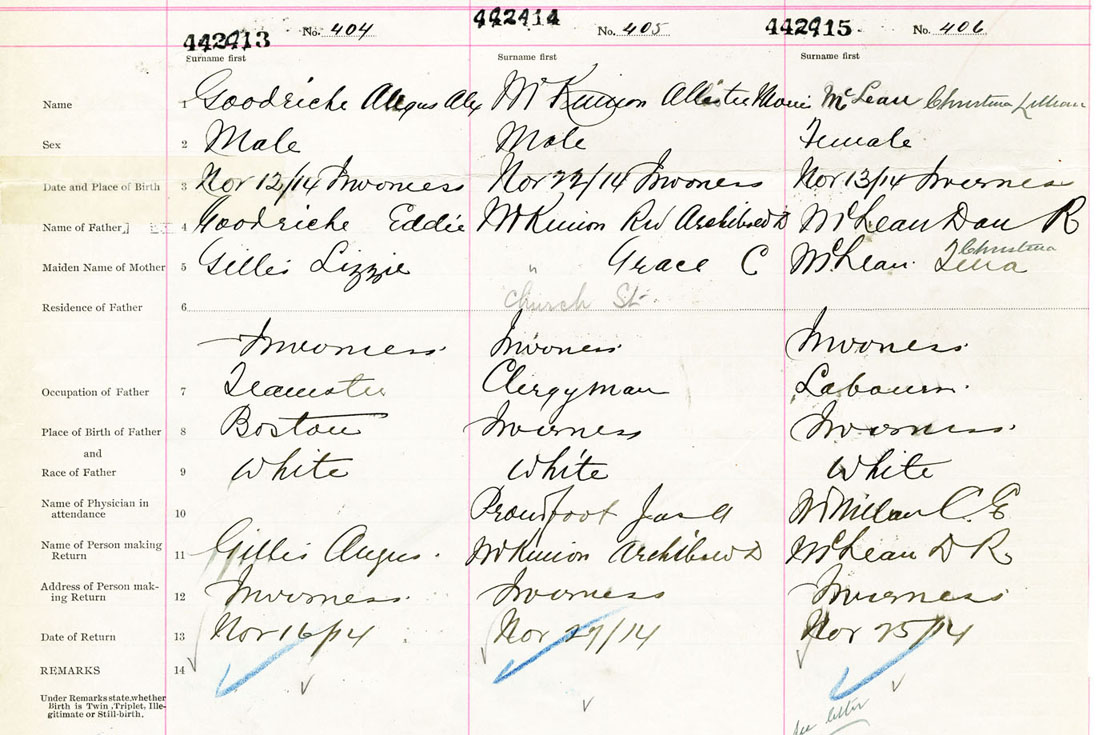 442413 No. 404 442414 No. 405 442415 No. 406
Surname first Surname first Surname first
Name 1 Goodriche Angus Alex McKinnon Allister McLean Christina Lillian
Sex 2 Male Male Female
Date and Place of Birth 3 Nov 12/14 Inverness Nov 22/14 Inverness Nov 13/14 Inverness
Name of Father 4 Goodriche Eddie McKinnon Rev Archibald D McLean Dan R
Christina
Maiden Name of Mother 5 Gillis Lizzie " Grace C McLean Tena
Residence of Father 6 Church St.
Inverness Inverness Inverness
Occupation of Father 7 Teamster Clergyman Labourer
Place of Birth of Father 8 Boston Inverness Inverness
and
Race of Father 9 White White White
Name of Physician in
attendance 10 Proudfoot Jas A McMillan C. E
Name of Person making
Return 11 Gillis Angus. McKinnon Archibald D McLean D R
Address of Person mak-
ing Return 12 Inverness Inverness Inverness
Date of Return 13 Nov 16/14 Nov 27/14 Nov 25/14
REMARKS 14
Under Remarks state whether
Birth is Twin, Triplet, Ille-
gitimate or Still-birth.
See letter